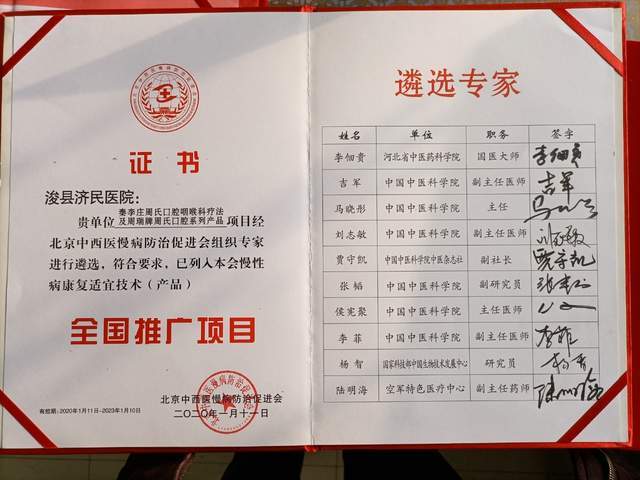 证书
浚县济民医院：
秦李庄周氏口腔咽喉科疗法
贵单位及周瑞牌周氏口腔系列产品项目经
北京中西医慢病防治促进会组织专家
进行遴选，符合要求，已列入本会慢性
病康复适宜技术（产品）
全国推广项目
北京中西医慢病防治促进会
有效期：2020年1月11日-2023年1月10日
二〇二〇年一月十一日
遴选专家
姓名 单位 职务 签字
李佃贵 河北省中医药科学院 国医大师 李佃贵
吉军 中国中医科学院 副主任医师 吉军
马晓彤 中国中医科学院 主任
刘志敏 中国中医科学院 副主任医师
贾守凯 中国中医科学院中医杂志社 副社长
张韬 中国中医科学院 副研究员
侯宪聚 中国中医科学院 主任医师
李菲 中国中医科学院 副主任医师 李菲
杨智 国家科技部中国生物技术发展中心 研究员
陆明海 空军特色医疗中心 副主任药师